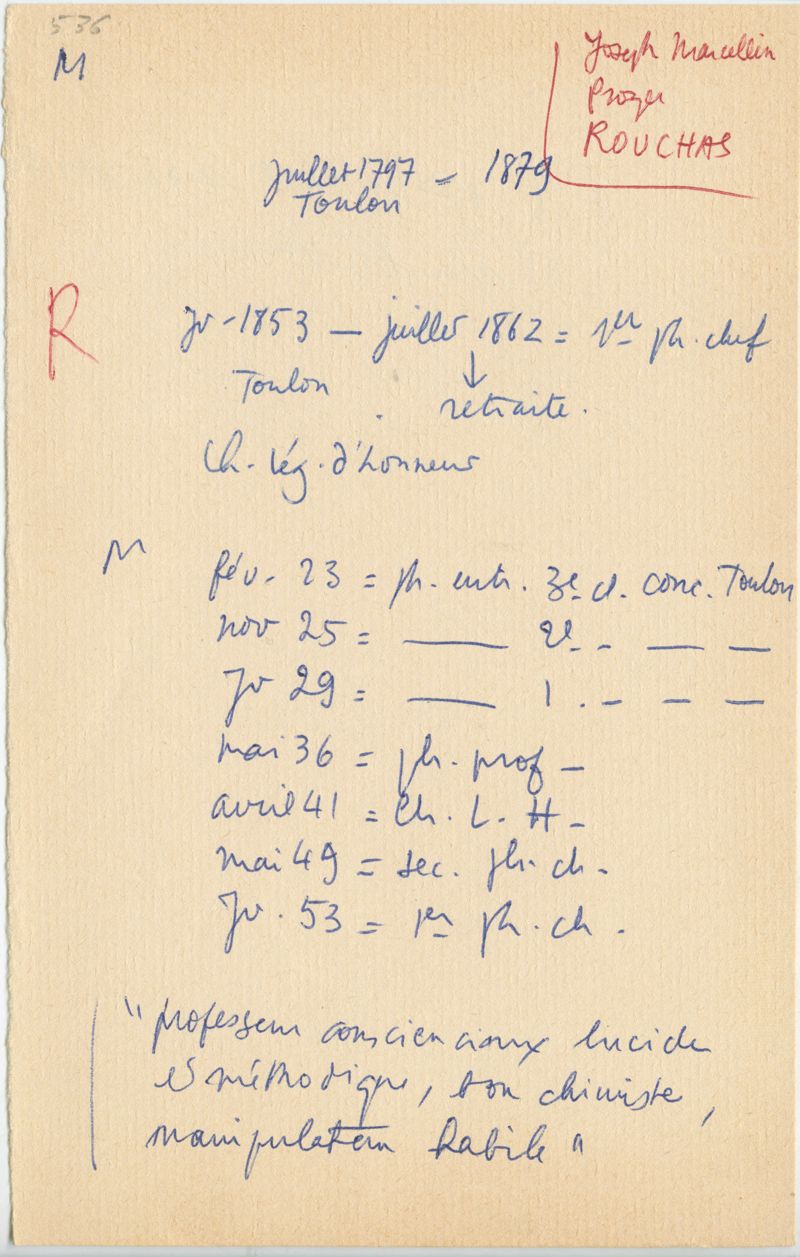 536
M
Joseph Marcellin
Prosper
ROUCHAS
juillet 1797 - 1879
Toulon
R
Jv - 1853 — juillet 1862 = 1er ph. chef
Toulon ↓
retraite.
Ch. lég. d'honneur
M
fév. 23 = ph. entr. 3e cl. conc. Toulon
nov 25 = —— 2e - — —
Jv 29 = —— 1. - — —
mai 36 = ph. prof -
avril 41 = Ch. L. H -
mai 49 = sec. ph. ch -
Jv. 53 = 1er ph. ch.
"professeur consciencieux lucide
et méthodique, bon chimiste,
manipulateur habile"